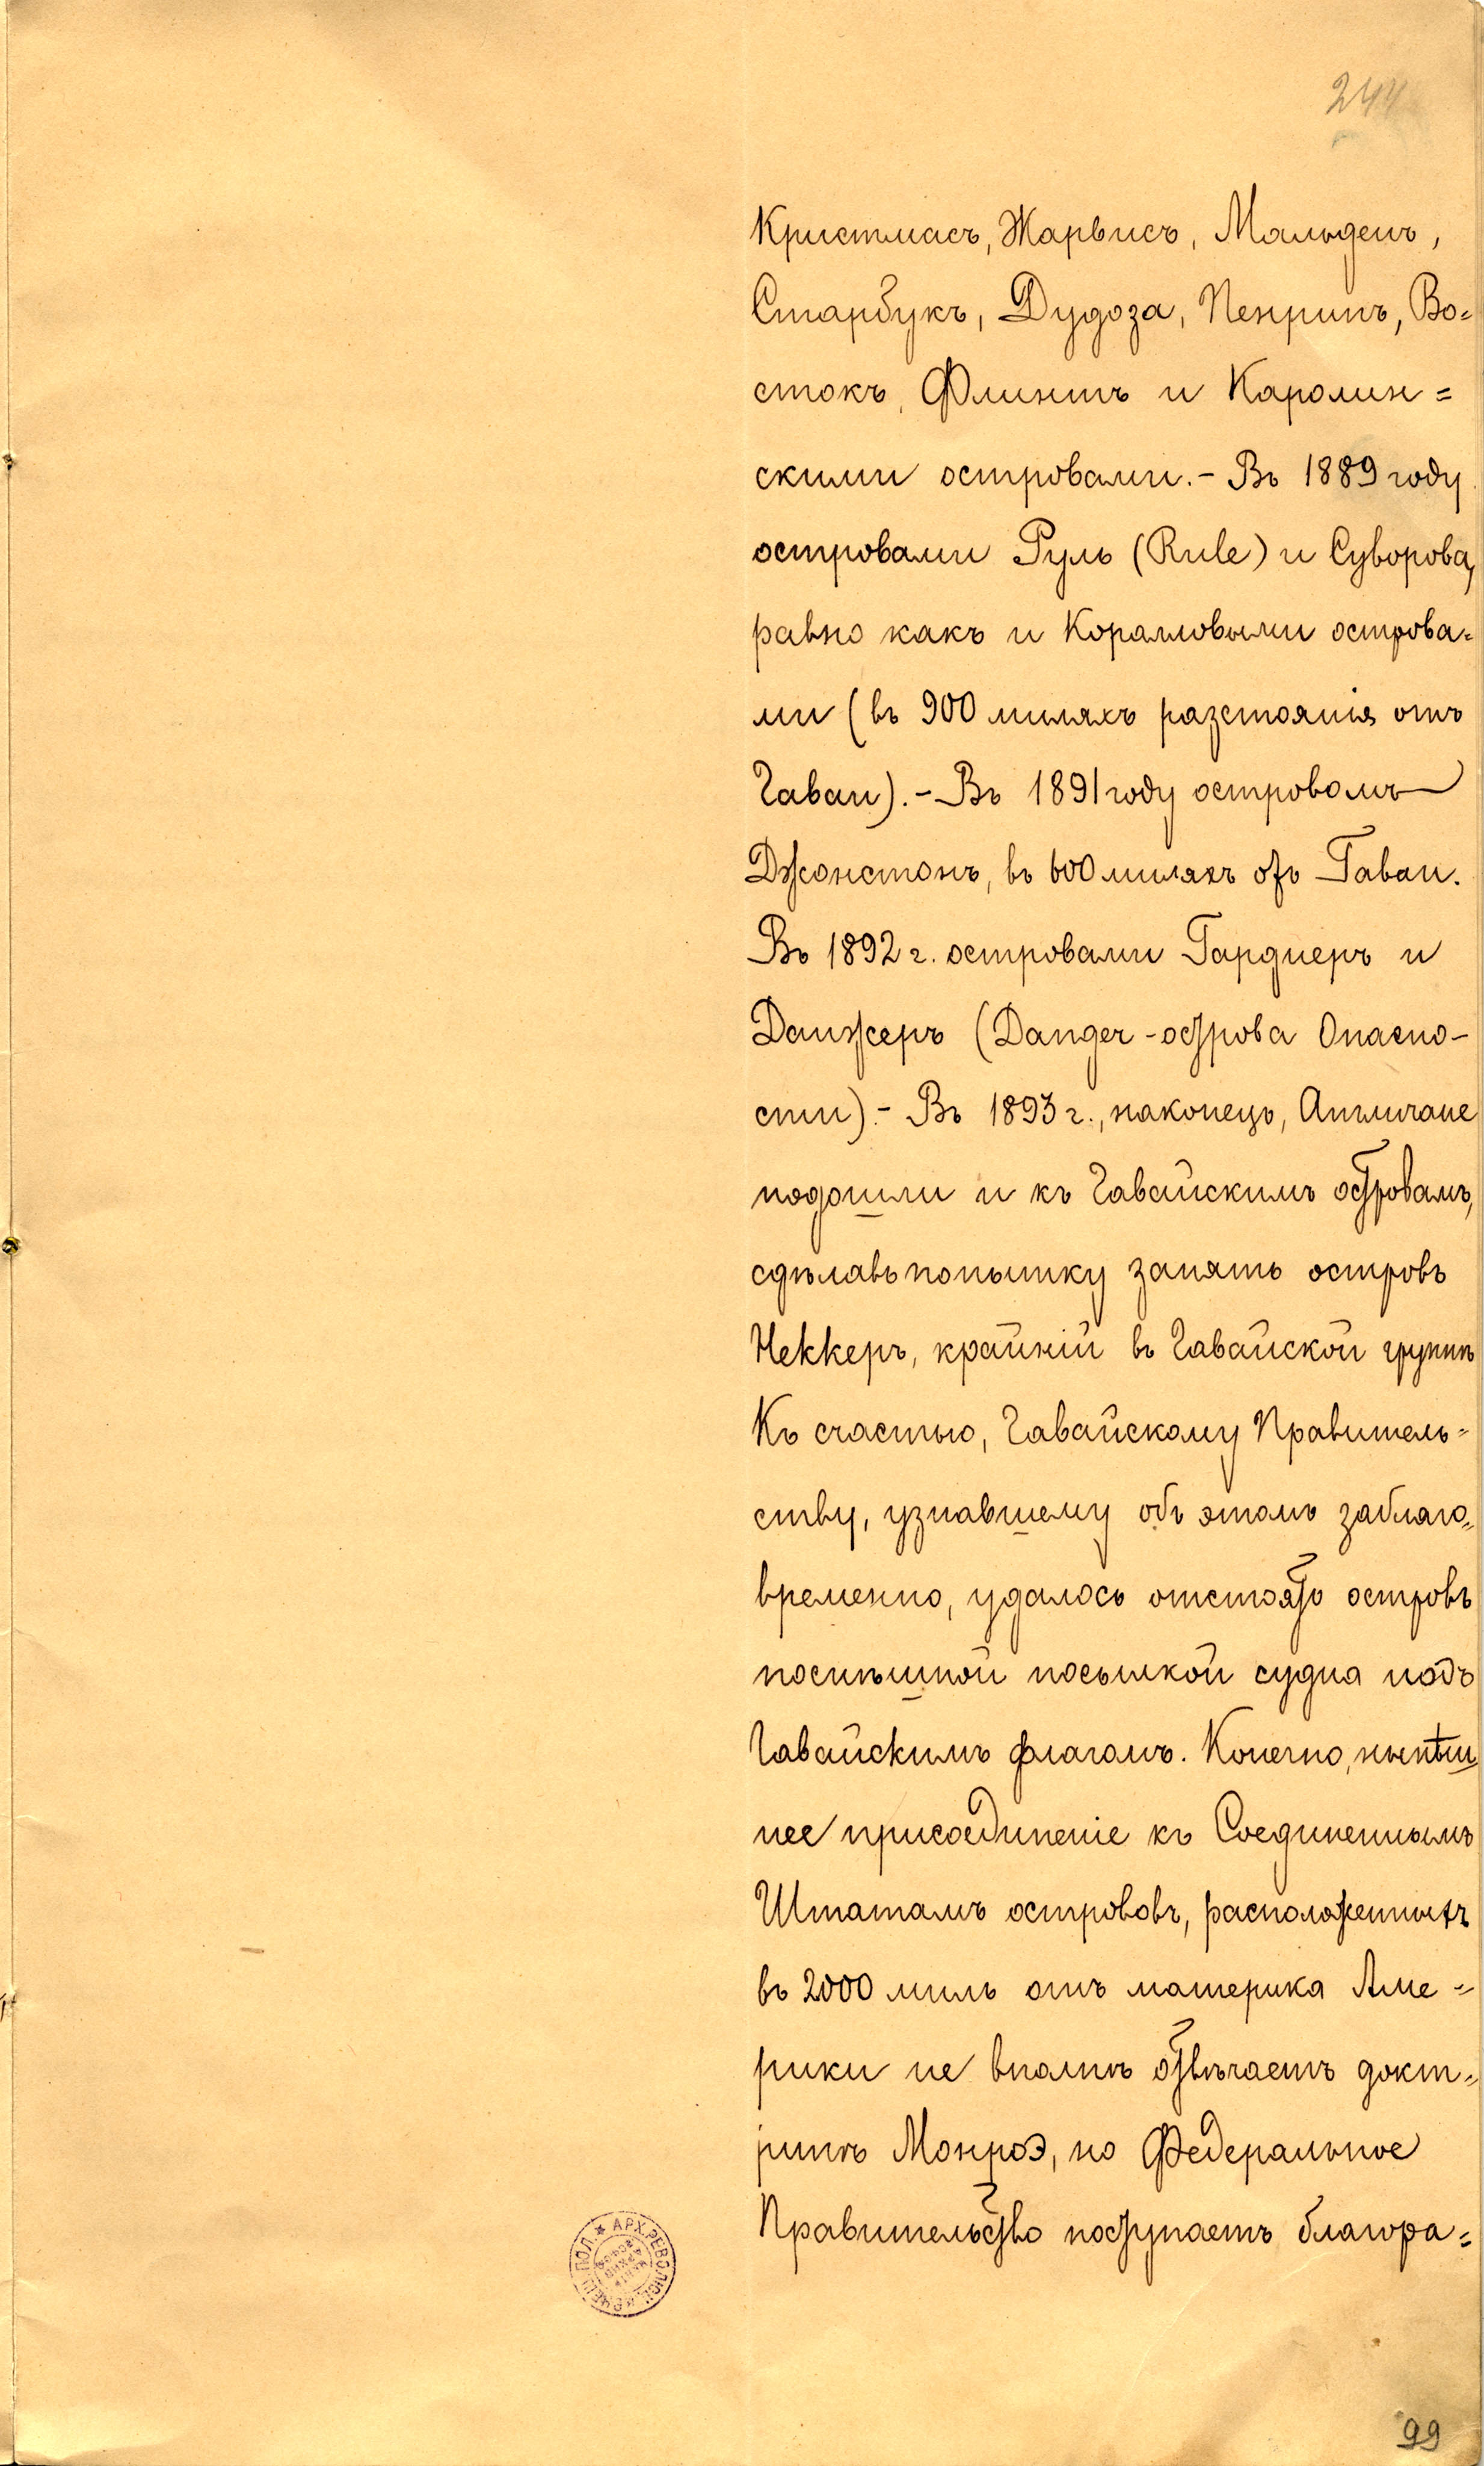 244
Кристмасъ, Жарвисъ, Мальденъ,
Старбукъ, Дудоза, Пенринъ, Во=
стокъ, Флинтъ и Каролин=
скими островами.- Въ 1889 году
островами Руль (Rule) и Суворова,
равно какъ и Коралловыми острова=
ми (въ 900 миляхъ разстоянія отъ
Гаваи).- Въ 1891 году островомъ
Джонстонъ, въ 600 миляхъ отъ Гаваи.
Въ 1892 г. островами Гарднеръ и
Данжеръ (Danger - острова Опасно-
сти).- Въ 1893 г., наконецъ, Англичане
подошли и къ Гавайскимъ островамъ,
сдѣлавъ попытку занять островъ
Неккеръ, крайній въ Гавайской группѣ
Къ счастью, Гавайскому Правитель=
ству, узнавшему объ этомъ заблаго=
временно, удалось отстоять островъ
поспѣшной посылкой судна подъ
Гавайскимъ флагомъ. Конечно, нынѣш
нее присоединеніе къ Соединеннымъ
Штатамъ острововъ, расположенныхъ
въ 2000 миль отъ материка Аме=
рики не вполнѣ отвѣчаетъ докт=
ринѣ Монроэ, но Федеральное
Правительство поступаетъ благора=
АРХ. РЕВОЛЮЦ. И ВНЕШ. ПОЛ.
99